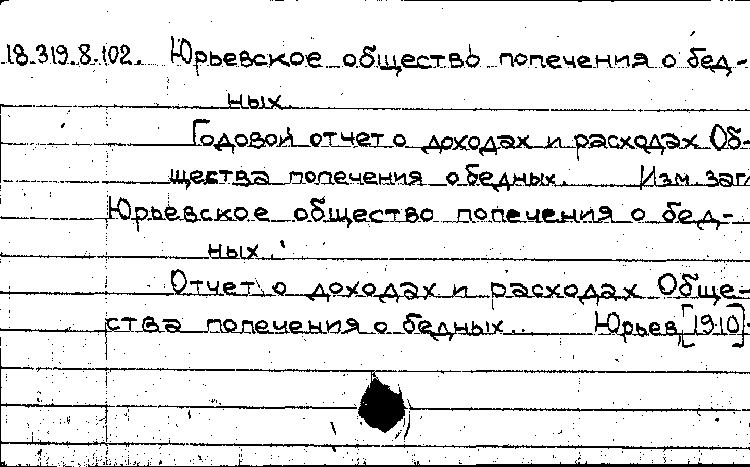 18.319.8.102. Юрьевское общество попечения о бед-
ных.
Годовой отчет о доходах и расходах Об-
щества попечения о бедных. Изм. заг.
Юрьевское общество попечения о бед-
ных.
Отчет о доходах и расходах Обще-
ства попечения о бедных.. Юрьев, [1910].